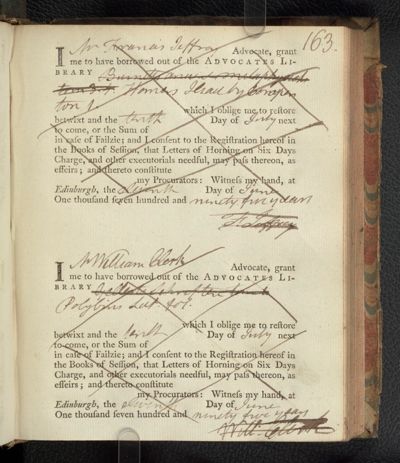 163.
I Mr Francis Jeffrey Advocate, grant
me to have borrowed out of the ADVOCATES LI-
BRARY
Homers Iliad by
ton j. which I oblige me to restore
betwixt and the tenth Day of July next
to come, or the Sum of
in case of Failzie; and I consent to the Registration hereof in
the Books of Session, that Letters of Horning on Six Days
Charge, and other executorials needful, may pass thereon, as
effeirs; and thereto constitute
my Procurators: Witness my hand, at
Edinburgh, the eleventh Day of June
One thousand seven hundred and ninety five years
F. Jeffrey
I Mr William Clerk Advocate, grant
me to have borrowed out of the ADVOCATES LI-
BRARY
Polybius
which I oblige me to restore
betwixt and the tenth Day of July next
to come, or the Sum of
in case of Failzie; and I consent to the Registration hereof in
the Books of Session, that Letters of Horning on Six Days
Charge, and other executorials needful, may pass thereon, as
effeirs; and thereto constitute
my Procurators: Witness my hand, at
Edinburgh, the eleventh Day of June
One thousand seven hundred and ninety five years
Will. Clerk